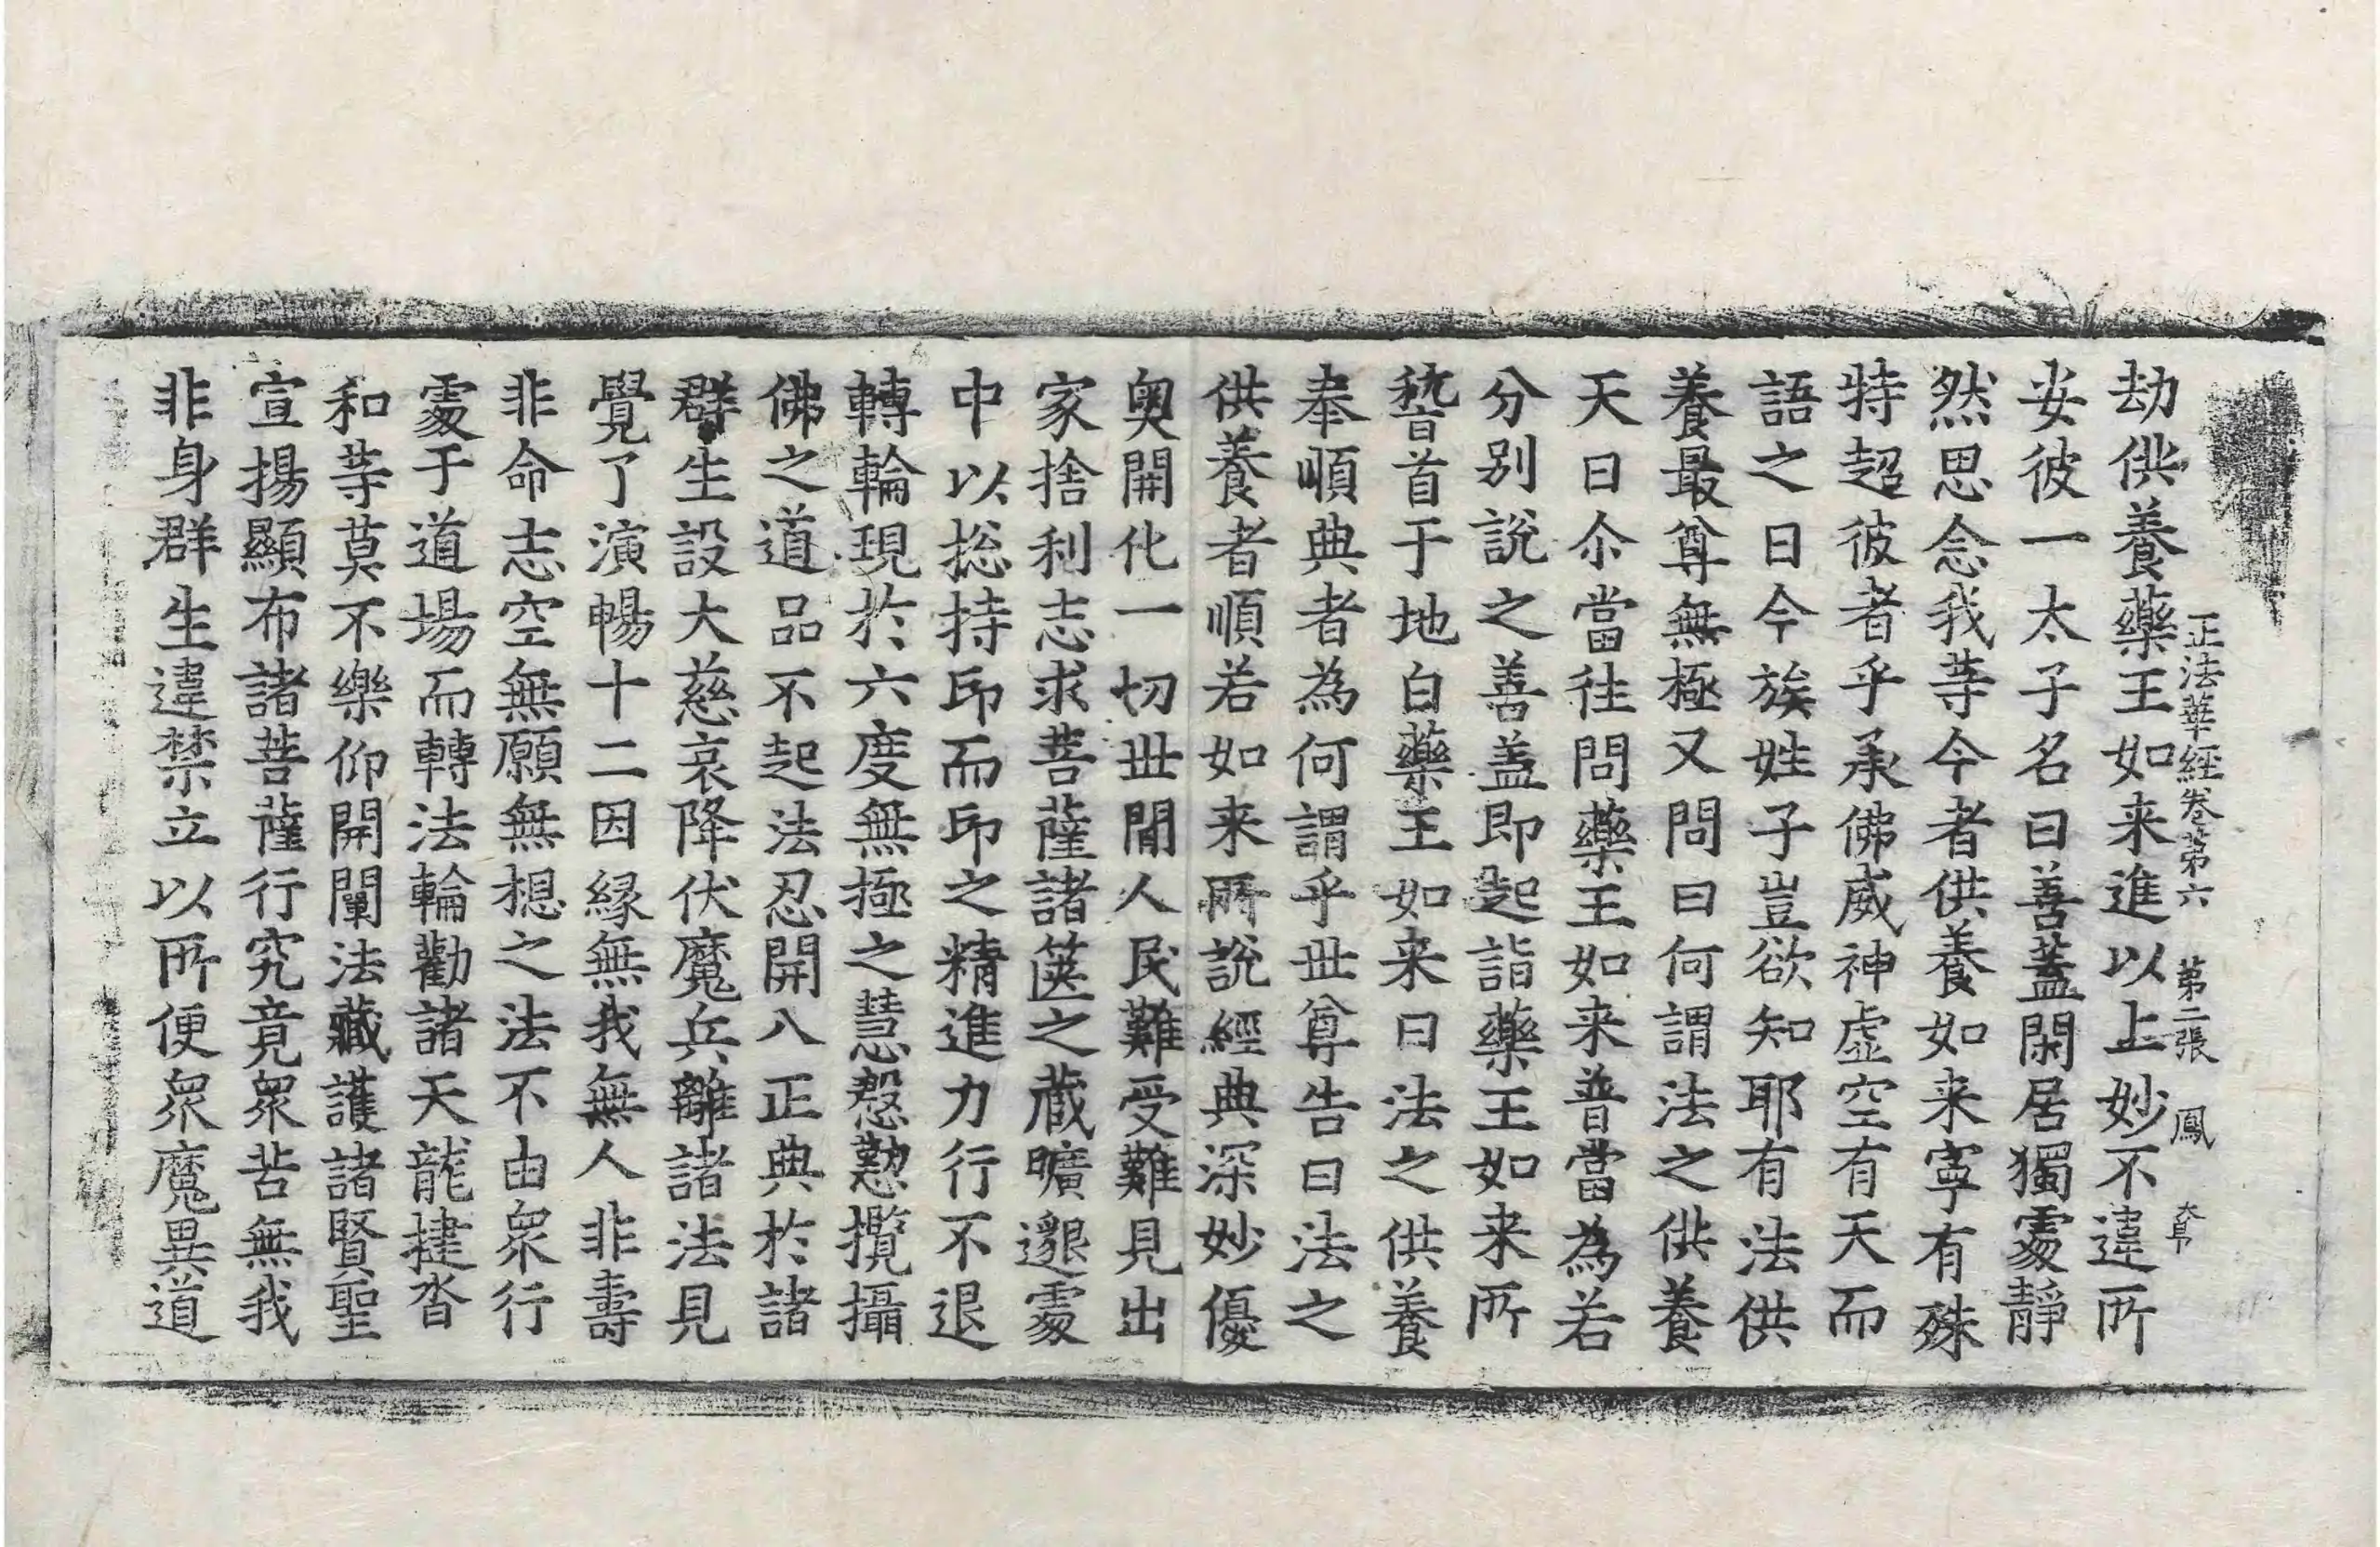 正法華經卷第六　第二張　鳳　大阜
劫供養藥王如来進以上妙不違所
安彼一太子名曰善蓋閑居獨處靜
然思念我等今者供養如来寧有殊
特超彼者乎承佛威神虛空有天而
語之曰今族姓子豈欲知耶有法供
養最尊無極又問曰何謂法之供養
天曰尒當往問藥王如来普當為若
分別說之善盖即起詣藥王如来所
稽首于地白藥王如来曰法之供養
奉順典者為何謂乎世尊告曰法之
供養者順若如来所說經典深妙優
奧開化一切世間人民難受難見出
家捨利志求菩薩諸篋之藏曠邈處
中以捴持印而印之精進力行不退
轉輪現於六度無極之慧慇懃攬攝
佛之道品不起法忍開八正典於諸
群生設大慈哀降伏魔兵離諸法見
覺了演暢十二因緣無我無人非壽
非命志空無願無想之法不由衆行
處于道場而轉法輪勸諸天龍揵沓
和等莫不樂仰開闡法藏護諸賢聖
宣揚顯布諸菩薩行究竟衆苦無我
非身群生違禁立以所便衆魔異道